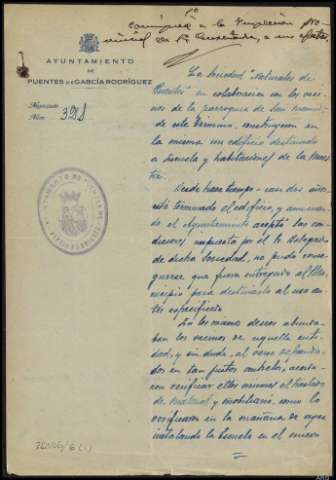 Pº
Comuníquese a la Inspección pro-
vincial de 1ª Enseñanza, a sus efectos
AYUNTAMIENTO
DE
PUENTES DE GARCÍA RODRÍGUEZ
Negociado
Núm. 391
La Sociedad "Naturales de
en colaboración con los veci-
nos de la parroquia de San
de este término, construyeron en
la misma un edificio destinado
a Escuela y habitaciones de la Maes-
tra.
Desde hace tiempo - casi dos años
está terminado el edificio, y aun cuan-
do el Ayuntamiento aceptó las con-
diciones impuestas por el Sr. Delegado
de dicha Sociedad, no pudo conse-
guirse que fuera entregado al Mu-
nicipio para destinarlo al uso an-
tes especificado.
En los mismos deseos abunda-
ban los vecinos de aquella enti-
dad, y sin duda, al verse defrauda-
dos en tan justos anhelos, acorda-
ron verificar ellos mismos el traslado
de material y mobiliario, como lo
verificaron en la mañana de ayer
instalando la Escuela en el nuevo